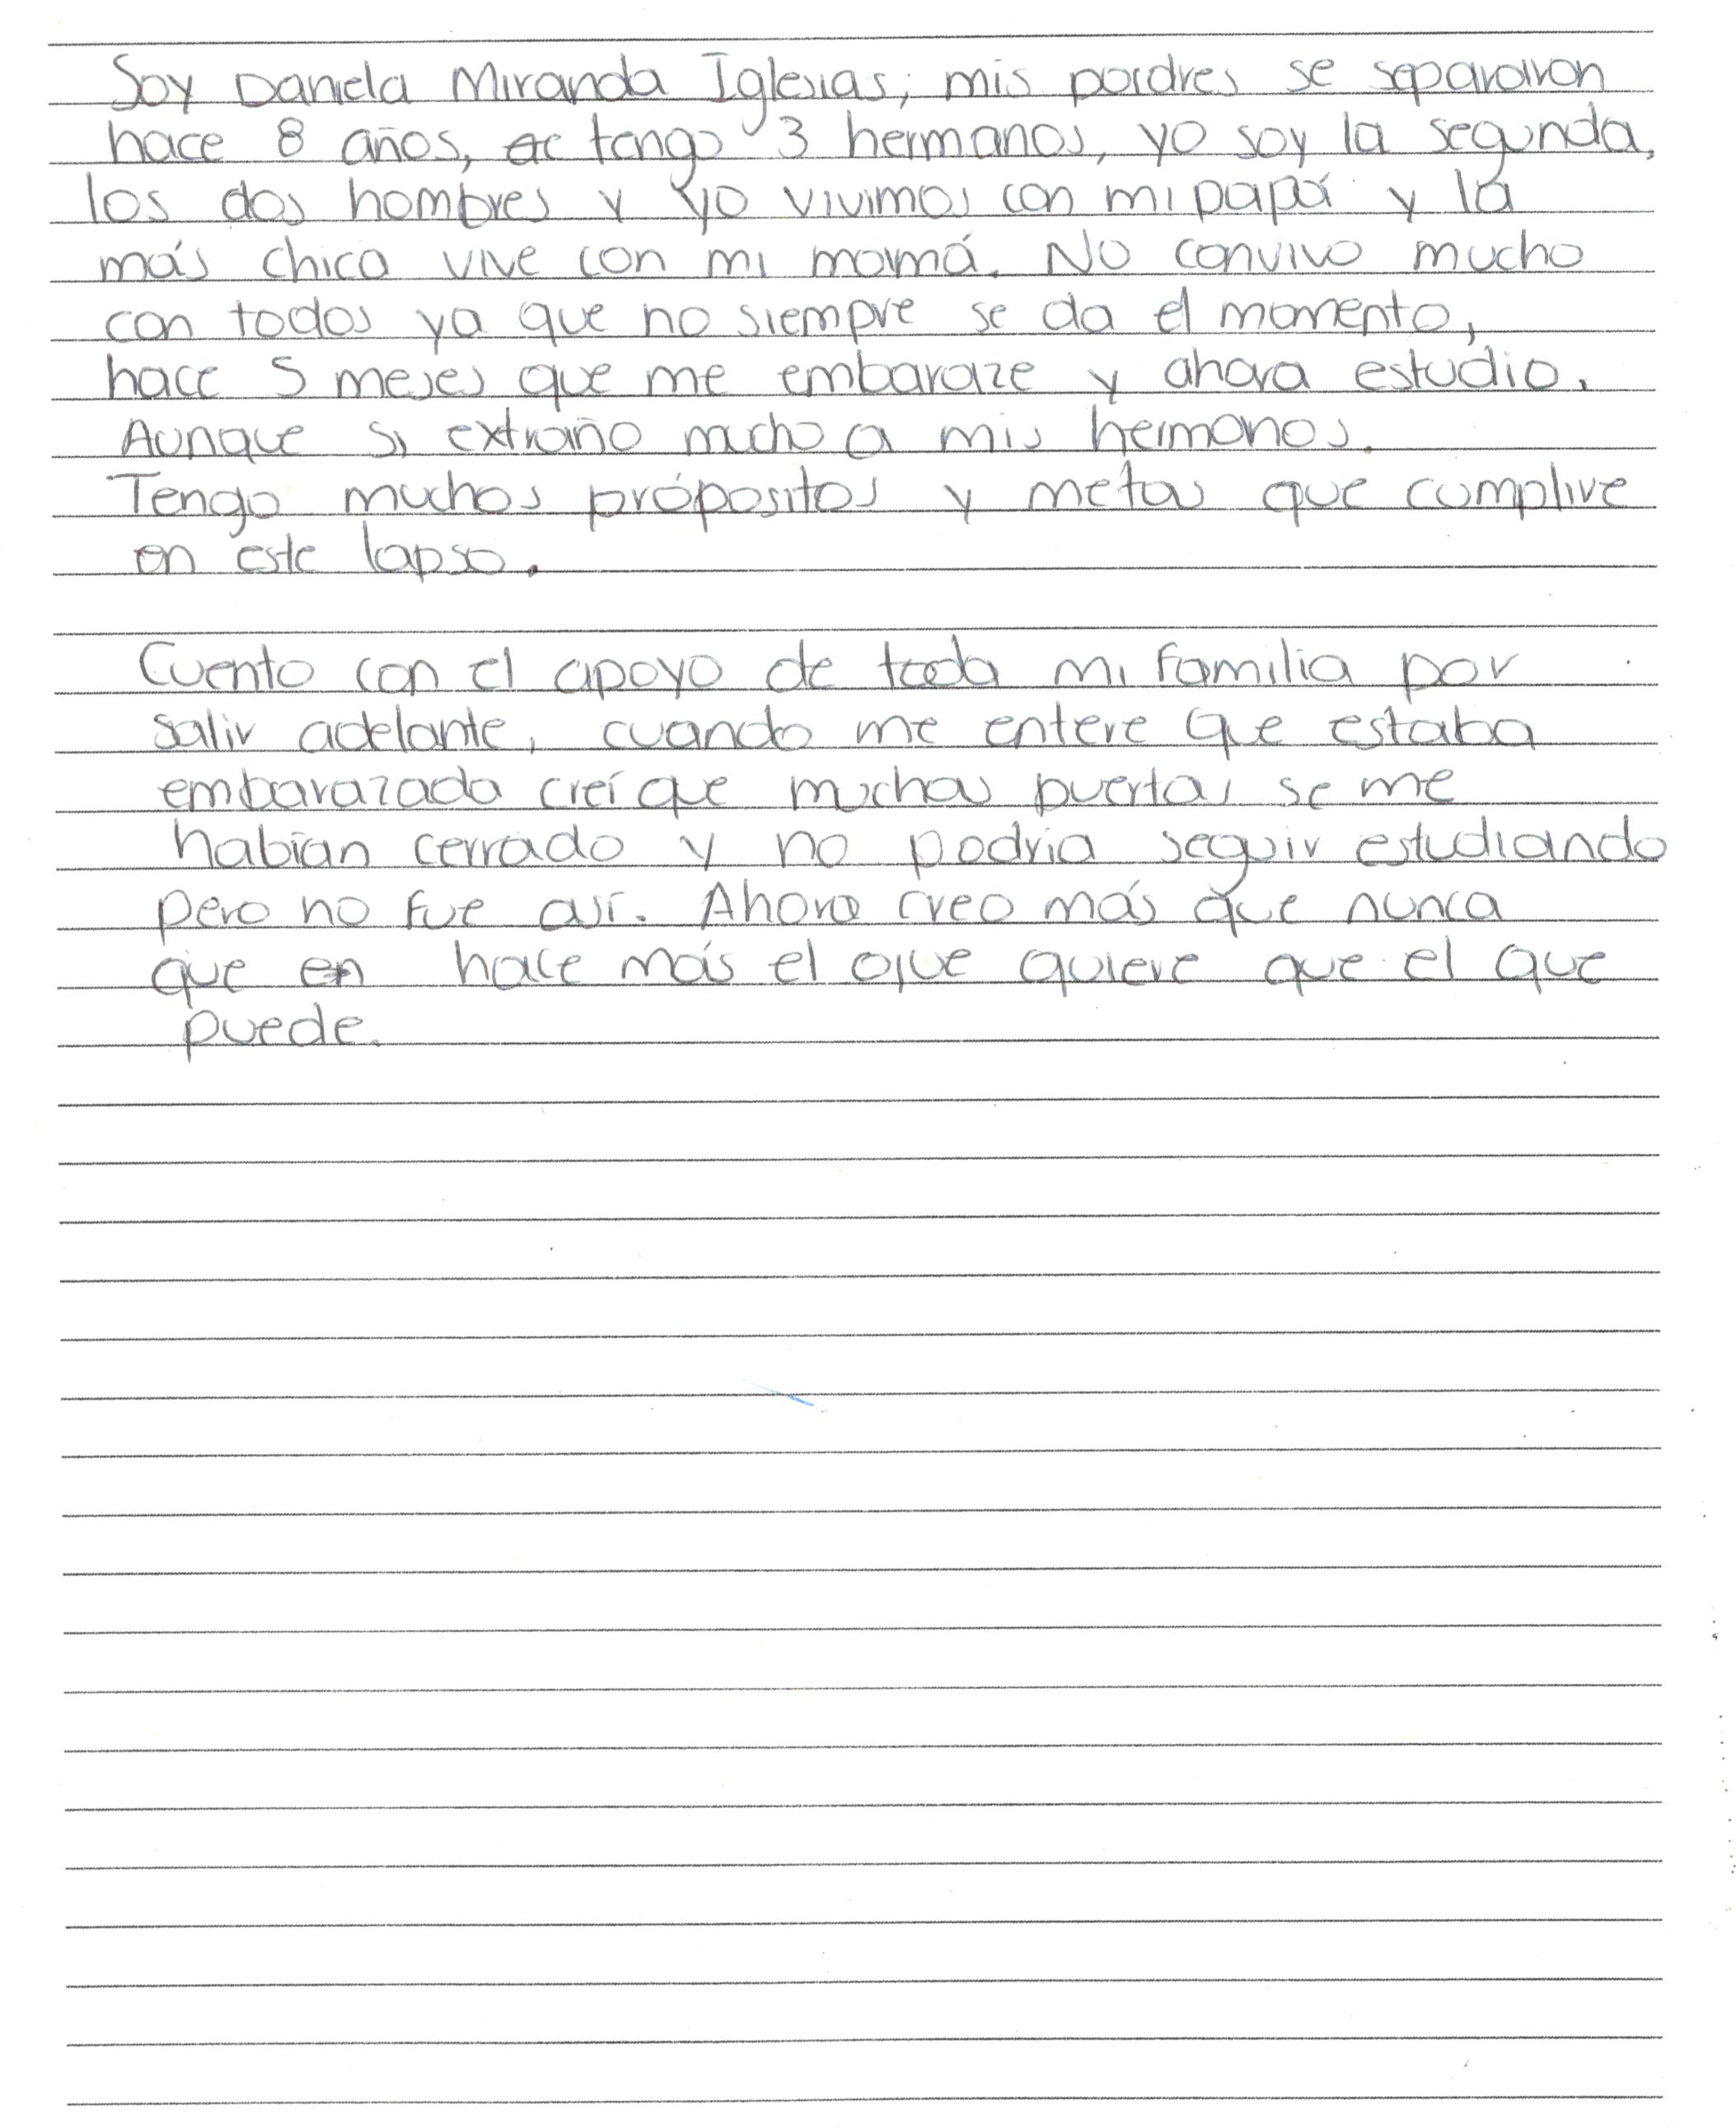 Soy Daniela Miranda Iglesias, mis padres se separaron
hace 8 años, tengo 3 hermanos, yo soy la segunda,
los dos hombres y yo vivimos con mi papá y la
más chica vive con mi mamá. No convivo mucho
con todos ya que no siempre se da el momento,
hace 5 meses que me embaraze y ahora estudio.
Aunque si extraño mucho a mis hermanos.
Tengo muchos própositos y metas que cumplire
en este lapso.
Cuento con el apoyo de toda mi familia por
salir adelante, cuando me entere que estaba
embarazada creí que muchas puertas se me
habían cerrado y no podría seguir estudiando
pero no fue así. Ahora creo más que nunca
que en hace más el que quiere que el que
puede.